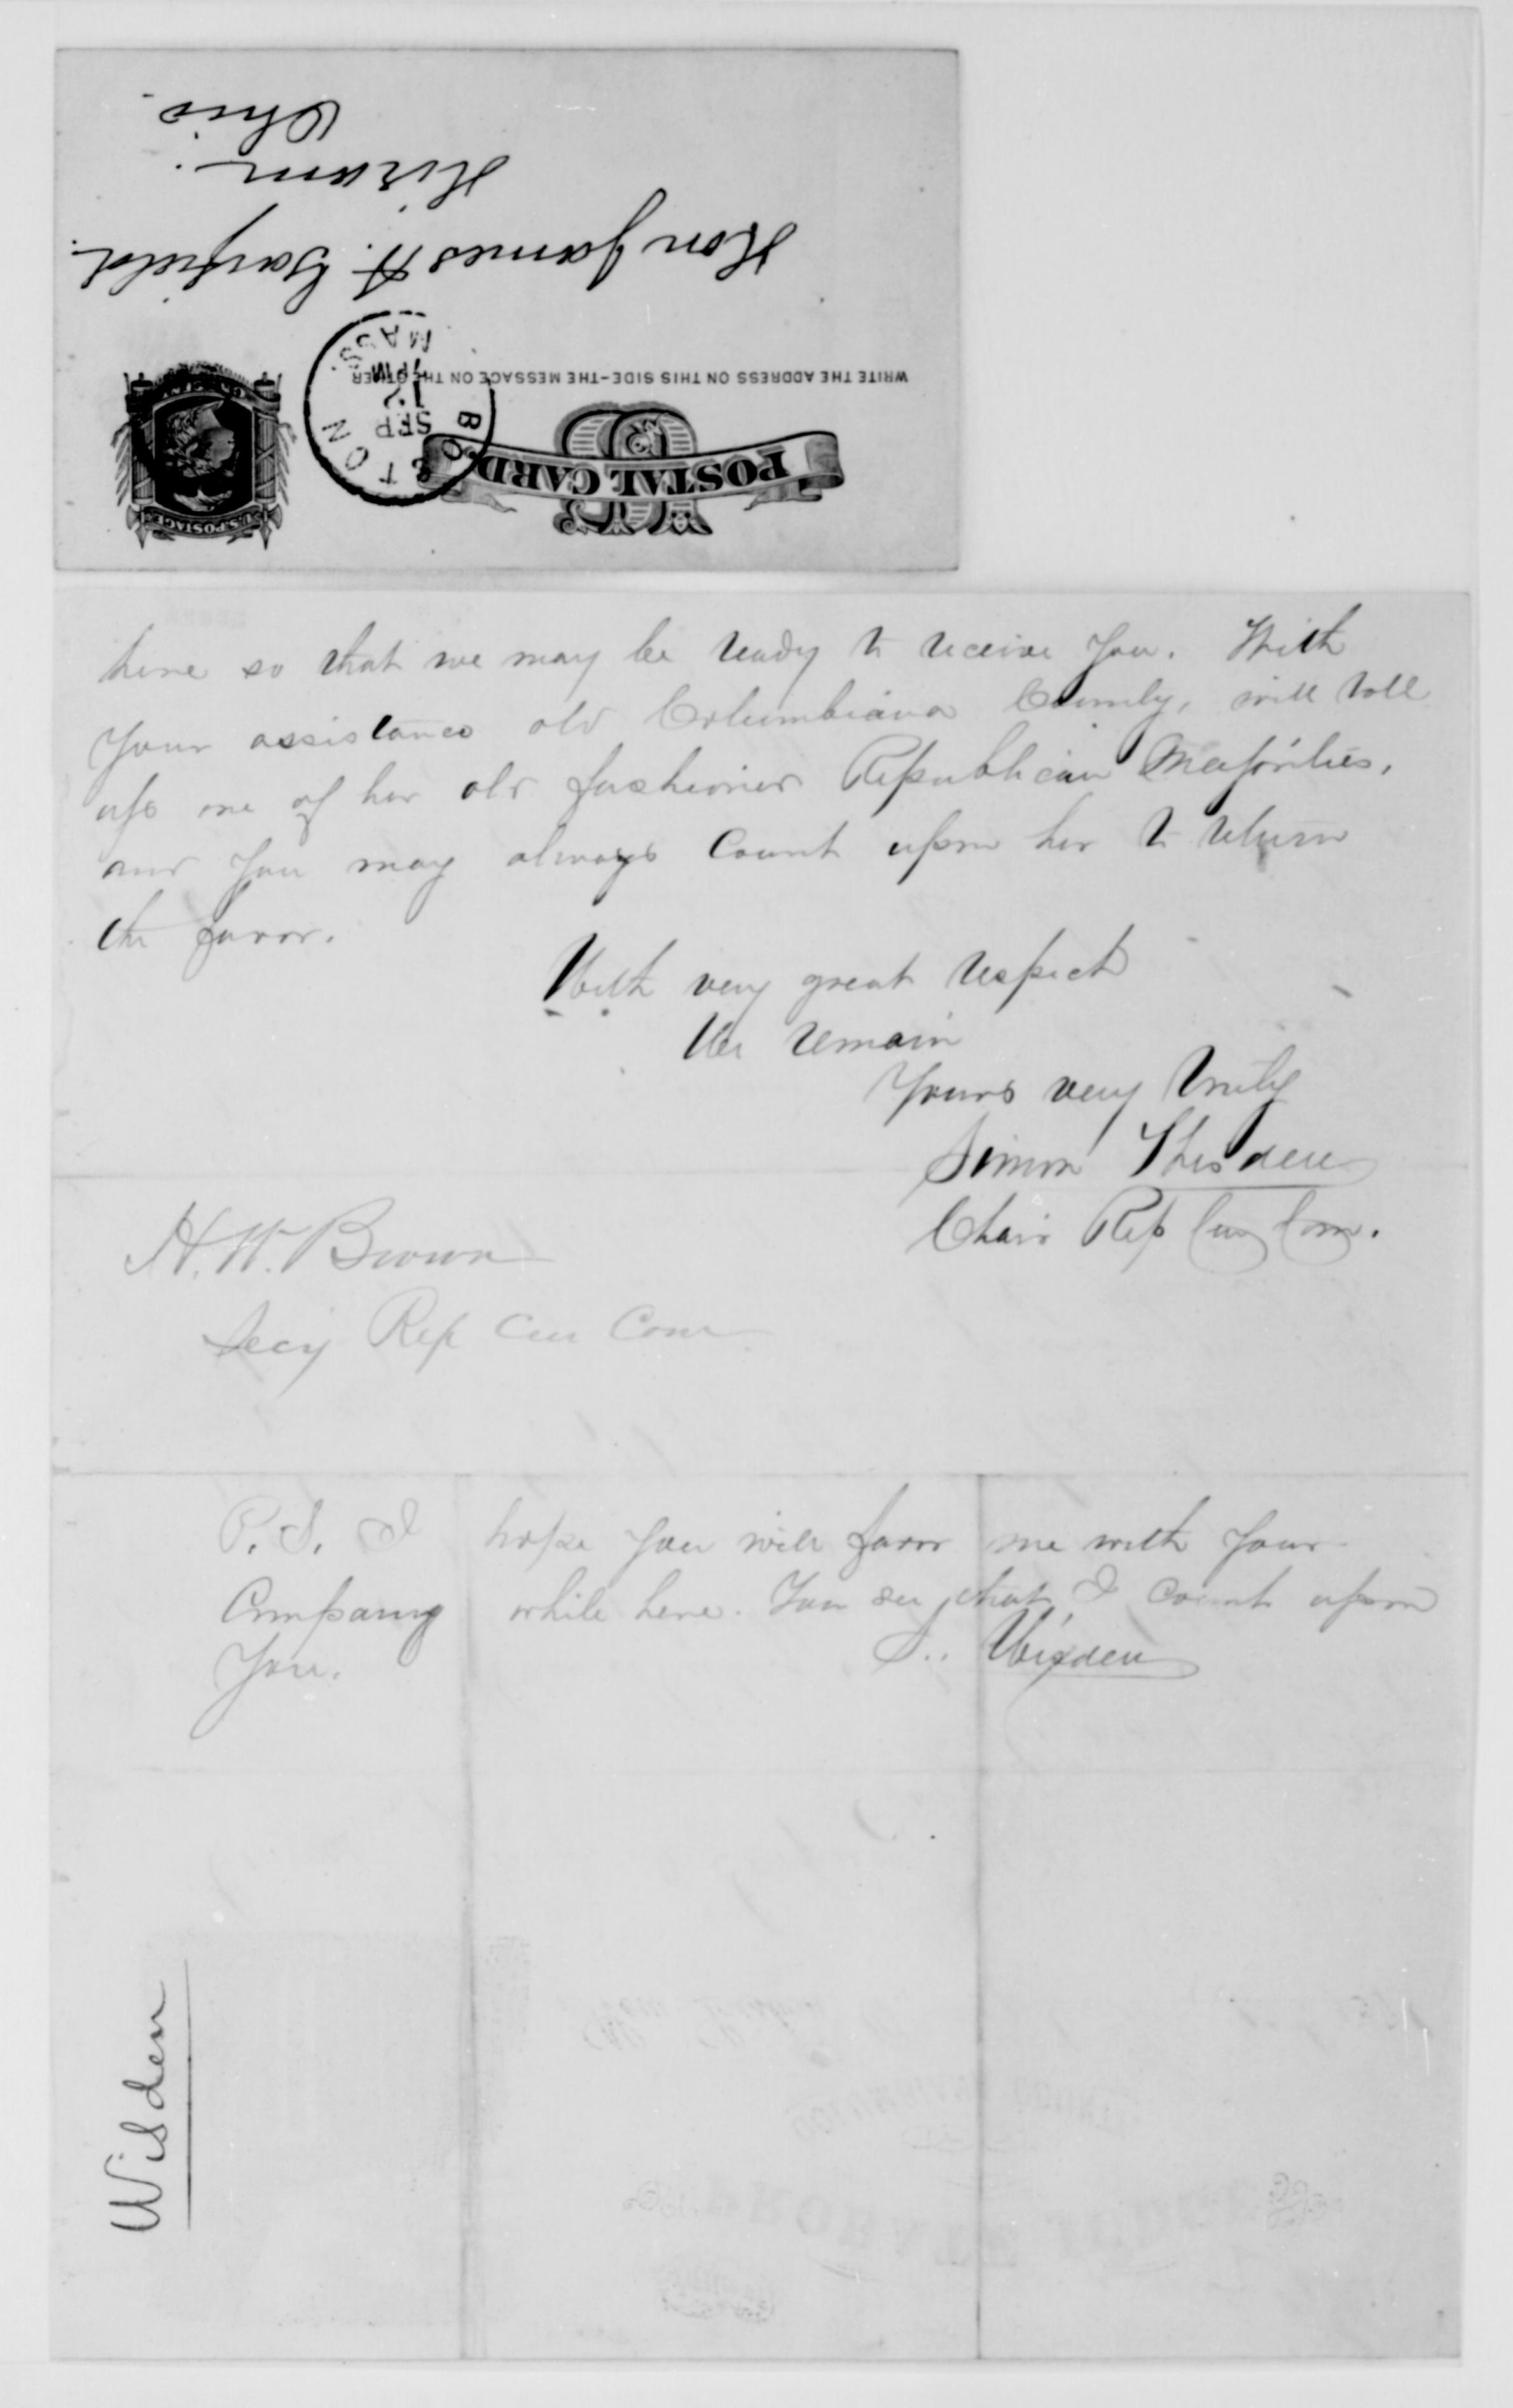 POSTAL CARD
U.S. POSTAGE
ONE CENT
WRITE THE ADDRESS ON THIS SIDE-THE MESSAGE ON THE OTHER
BOSTON
SEP
12
7 PM
MASS.
Hon James A. Garfield.
Hiram.
Ohio.
here so that we may be ready to receive you. With
your assistance old Columbiana County, will roll
up one of her old fashioned Republican Majorities,
and you may always count upon her to return
the favor.
With very great respect
We remain
Yours very truly
Simon Wisden
Chair Rep Cen Com.
H. W. Brown
Secy Rep Cen Com
P. S. I hope you will favor me with your
Company while here. You see, that I count upon
you.
S. Wisden
Wisden